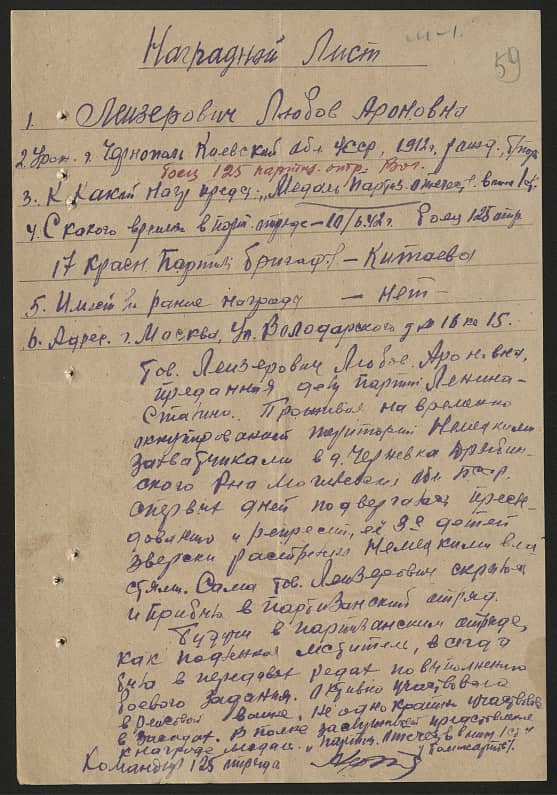 М-1.
59
Наградной Лист
1. Лейзерович Любовь Ароновна
2. Урож. г. Чернополь Киевский обл. УССР, 1912 г. рожд.,
боец 125 партиз. отр.
3. К какой нагр. предст. „Медаль Партиз. отечеств. войны I ст.
4. С какого времени в парт. отряде – 10/6.42 г. боец 125 отр.
17 Красн. Партиз. бригады – Китаева
5. Имеет ли ранее награду — нет –
6. Адрес. г. Москва, ул. Володарского д № 16 кв 15.
Тов. Лейзерович Любов. Ароновна,
преданная делу партии Ленина-
Сталина. Проживая на временно
оккупированной территории Немецкими
захватчиками в д. Черневка Дрибин-
ского Р-на Могилевской обл. БССР.
с первых дней подвергалась пресле-
дованию и репрессии, её 3е детей
зверски расстреляны Немецкими вла-
стями. Сама тов. Лейзерович скрылась
и прибыла в партизанский отряд.
Будучи в партизанском отряде,
как подлинная мститель, всегда
была в передовых рядах по выполнению
боевого задания. Активно участвовала
в войне. Неоднократно участвовала
в засадах. Вполне заслуживает представления
к награде медали „Партиз. отечеств. войны I ст."
Командир 125 отряда